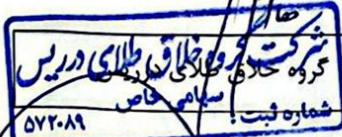 ها
شرکت گروه خلاق طلای دردیس
گروه خلاق طلای
سهامی خاص
شماره ثبت:
۵۷۲۰۸۹